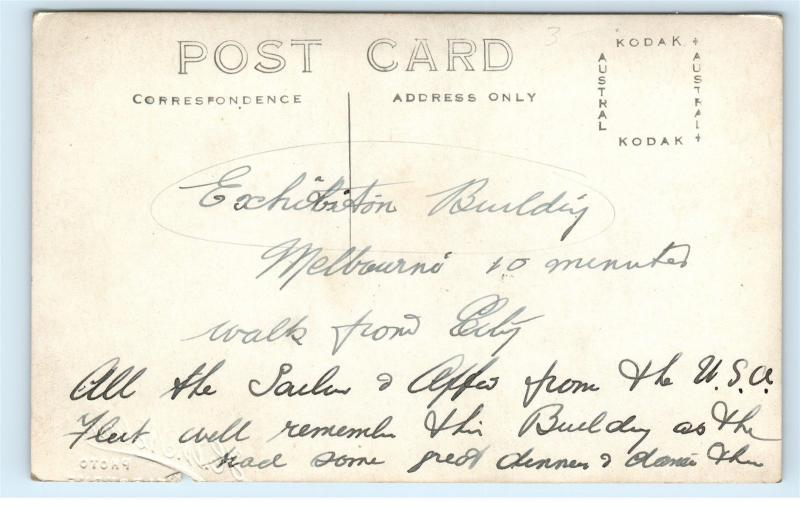 POST CARD
CORRESPONDENCE
ADDRESS ONLY
KODAK
AUSTRAL
AUSTRAL
KODAK
3
Exhibition Building
Melbourne 10 minutes
walk from City
All the Sailor & from the U.S.A.
Fleet will remember this Building as the
had some great dinner & dance the
PHOTO